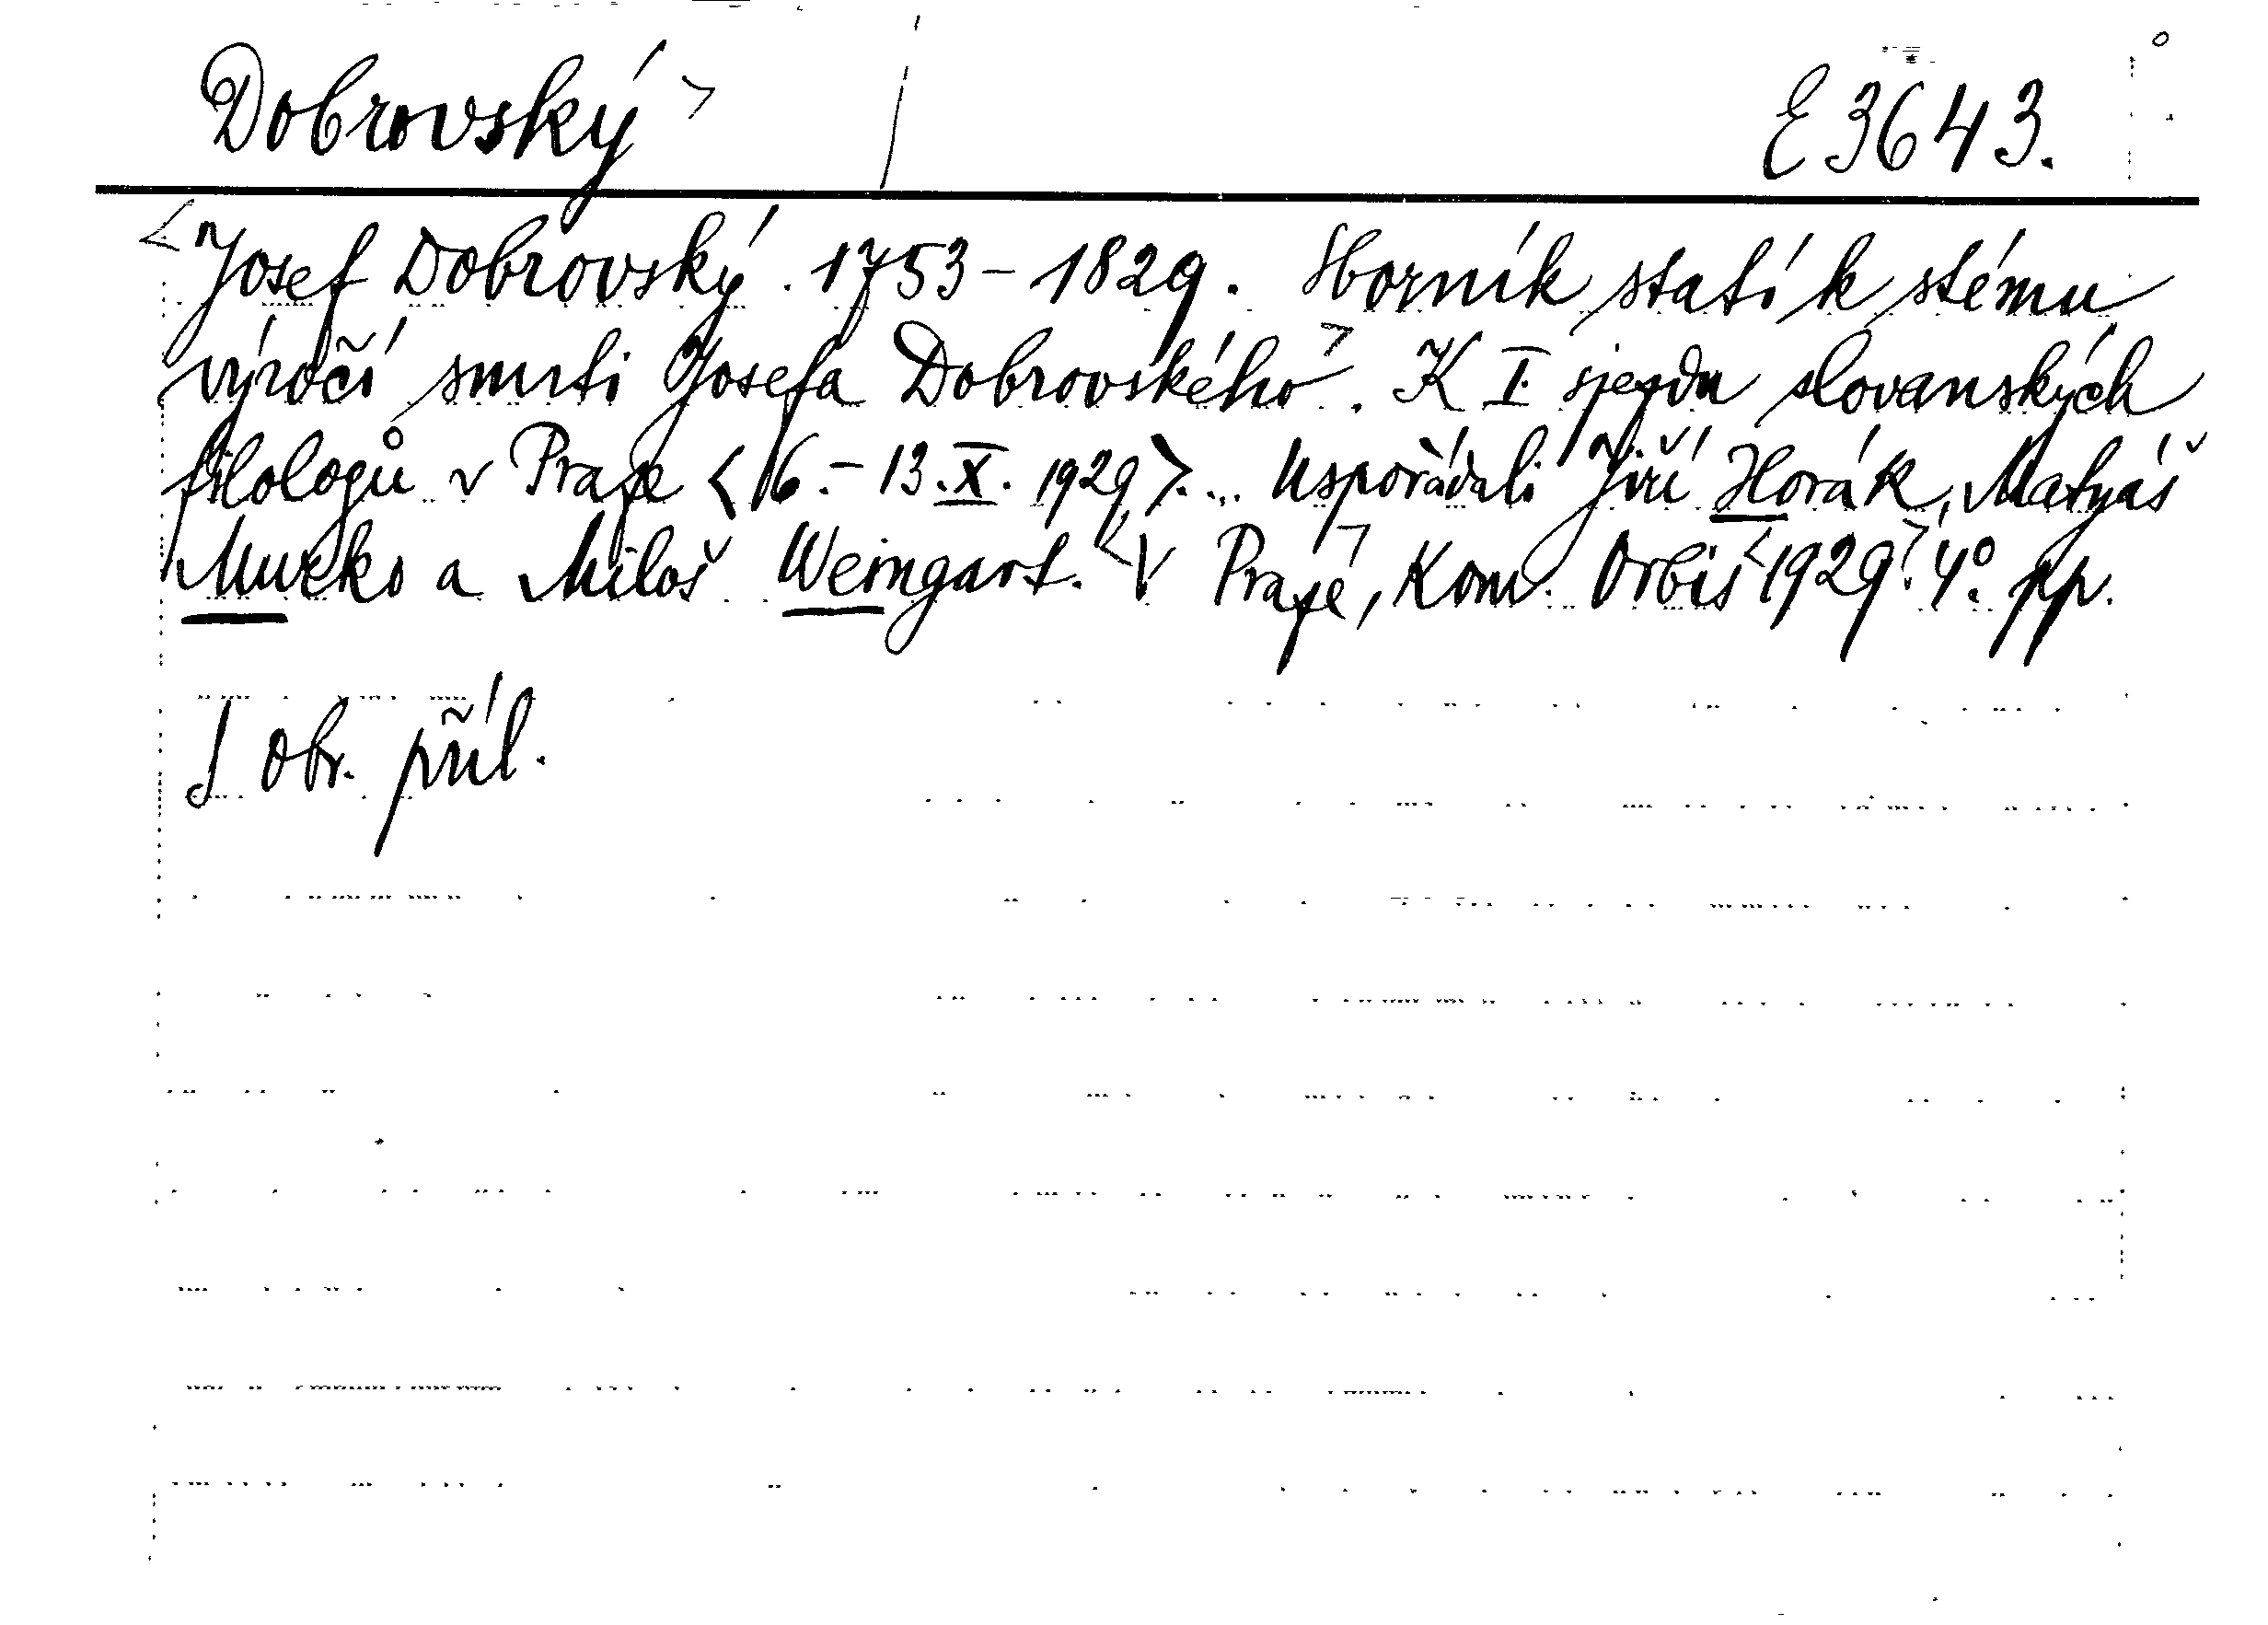 Dobrovský > E 3643.
<Josef Dobrovský. 1753-1829. Sborník statí k stému
výročí smrti Josefa Dobrovského>. K I. sjezdu slovanských
filologů v Praze <6.-13.X. 1929>... Uspořádali Jiří Horák, Matyáš
Murko a Miloš Weingart. <V Praze>, Kom. Orbis <1929>. 4°. pp.
S obr. příl.